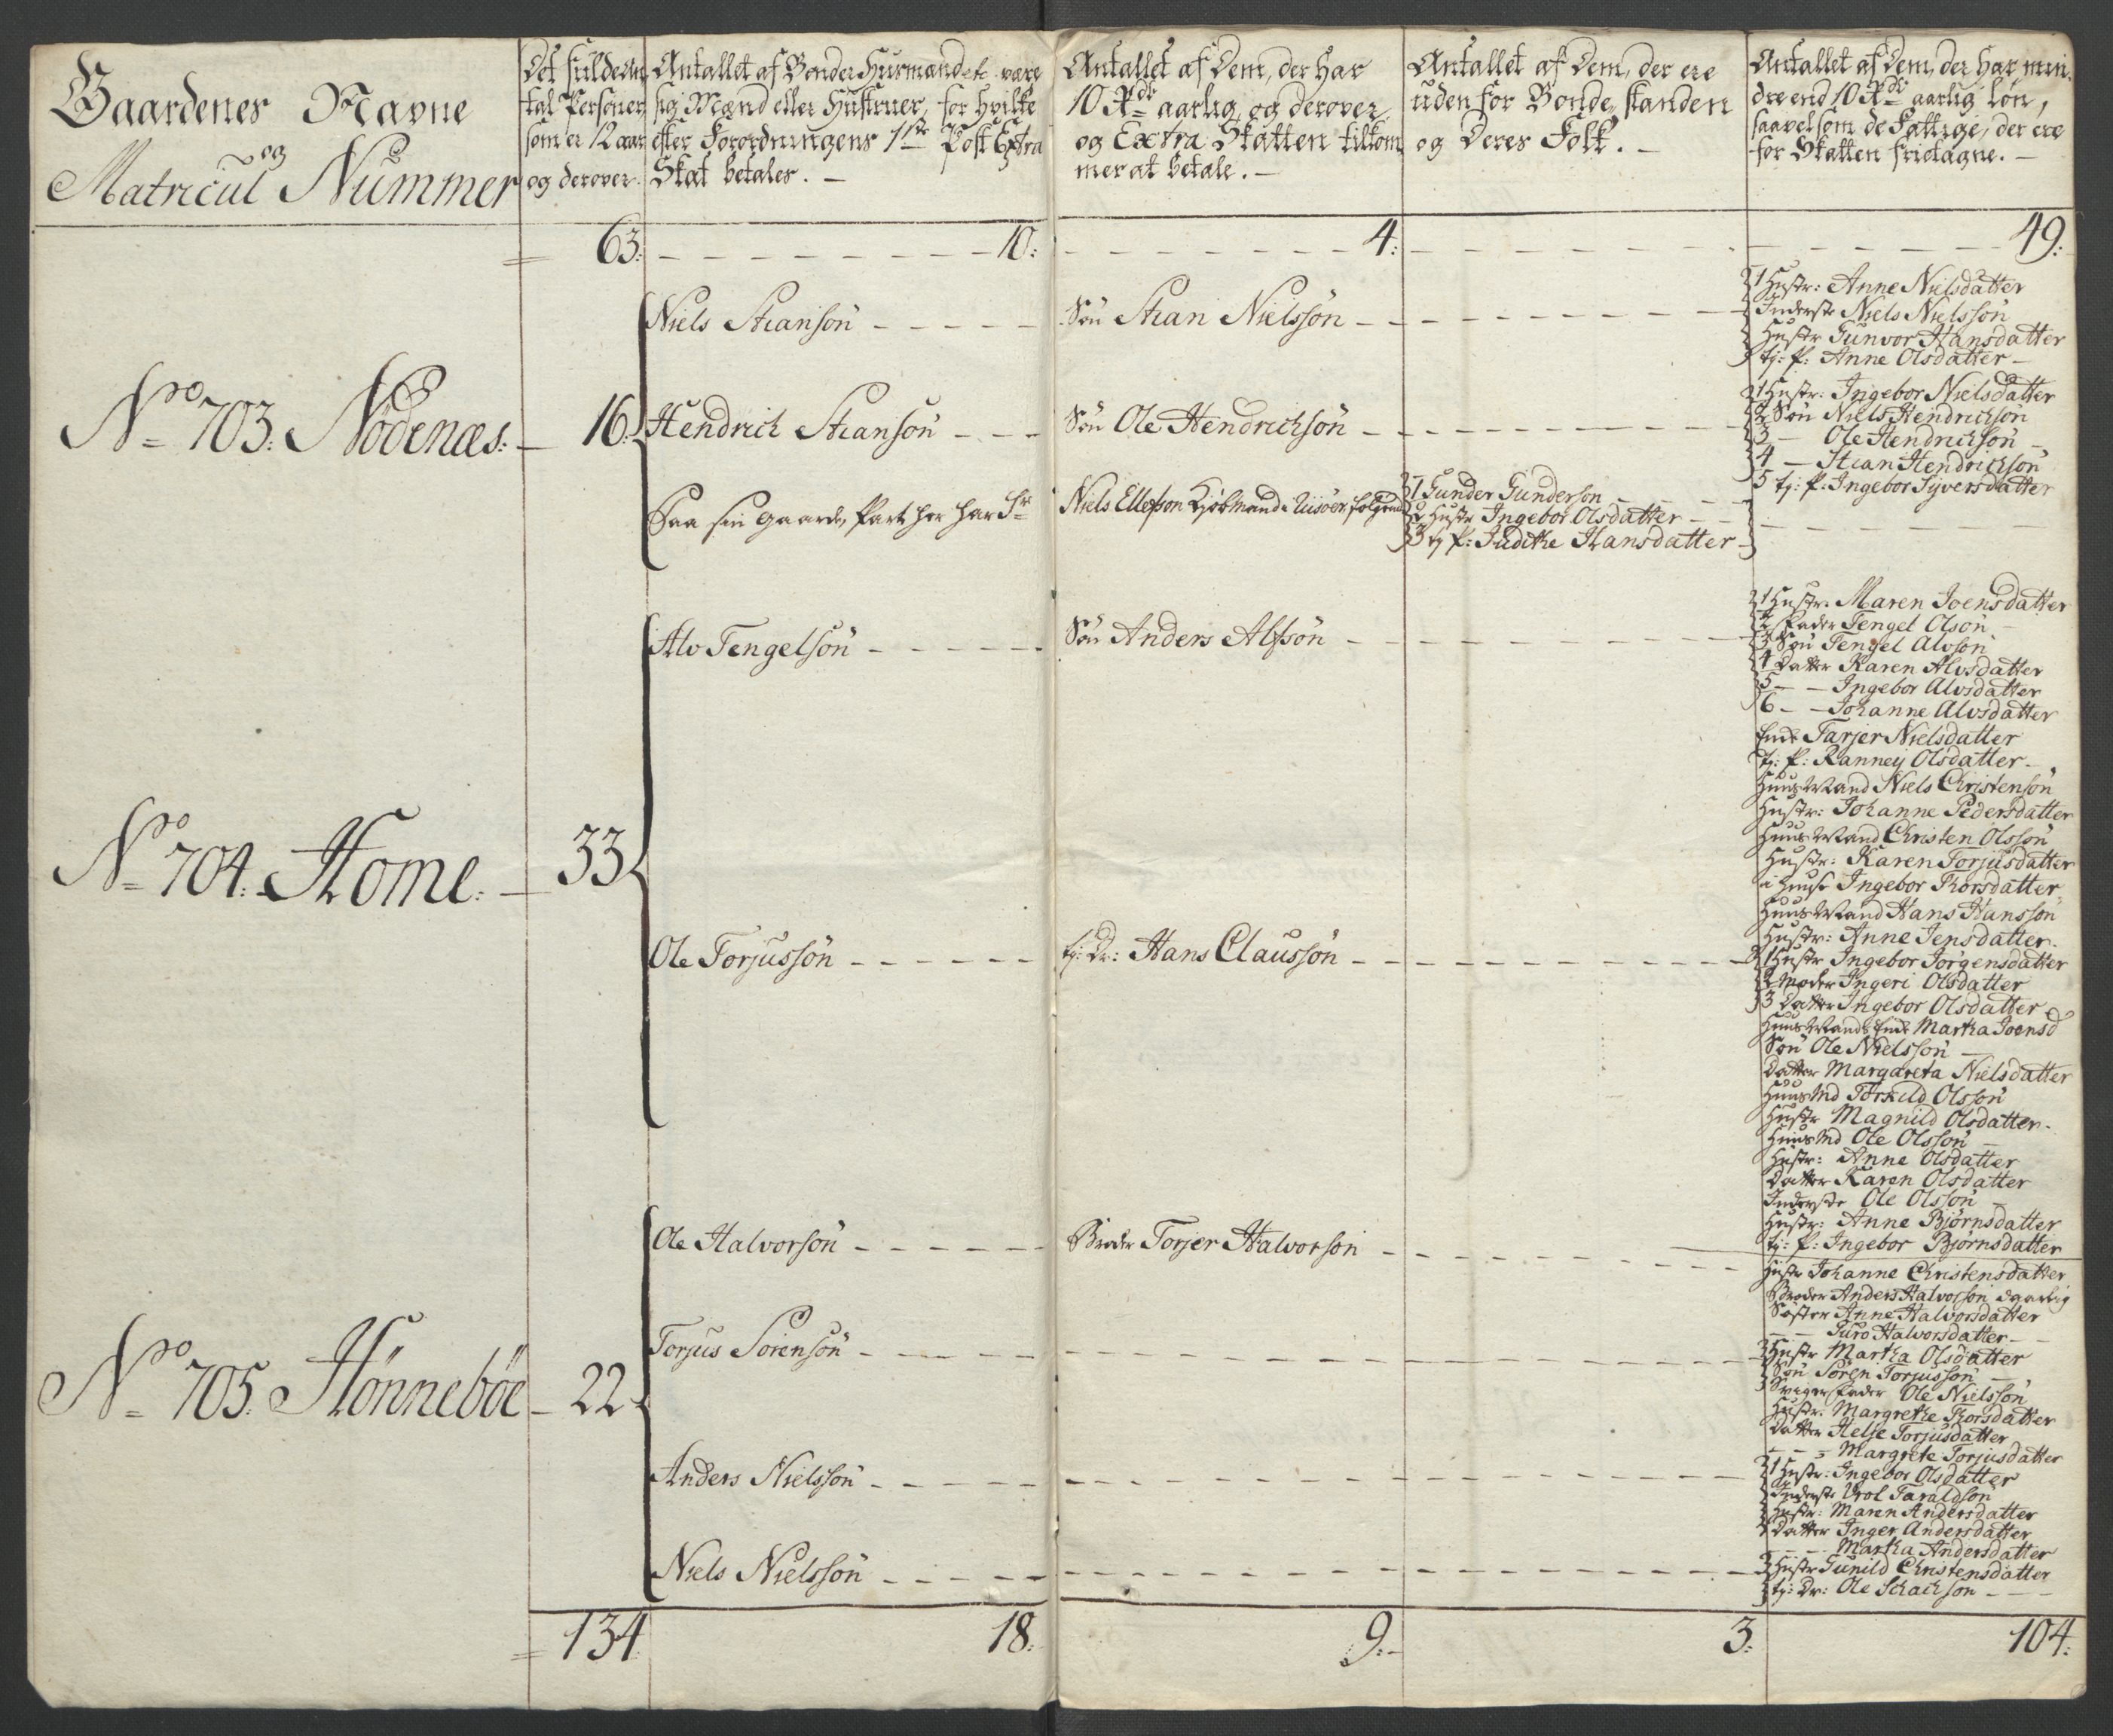 Gaardenes Navne
og
Matricul Nummer
Det fulde An
tal Personer
som er 12 aar
og derover.
Antallet af Bønder Husmænd etc være
sig Mænd eller Hustruer, for hvilke
efter Forordningens 1ste Post Extra
Skat betales. —
Antallet af Dem, der har
10 Rdr aarlig og derover,
og Extra Skatten tilkom
mer at betale. —
Antallet af Dem, der ere
uden for Bonde standen
og Deres Folk. —
Antallet af Dem, der har min
dre end 10 Rdr aarlig løn,
saavel som de Fattige, der ere
for Skatten frietagne. —
63: 10: 4: 49:
No 703. Nödenæs: 16.
Niels Stianson
Søn Stian Nielssön
1 Hustr: Anne Nielsdatter
Inderste Niels Nielssön
Hustr Gunvor Hansdatter
tj: P: Anne Olsdatter
Hendrich Stiansön
Søn Ole Hendrichsön
1 Hustr: Ingebor Nielsdatter
2 Søn Niels Hendrichson
3 — Ole Hendrichson
4 — Stian Hendrichsön
5 tj: P: Ingebor Syversdatter
Paa sin Gaards Part her har Sr
Niels Ellefson Kjøbmand i Riisöer følgende
1 Gunder Gunderson
2 Hustr Ingebor Olsdatter
3 tj P: Judithe Hansdatter
No 704. Home. 33
Alv Tengelsön
Søn Anders Alfsön
1 Hustr. Maren Joensdatter
2 Fader Tengel Olson
3 Søn Tengel Alvson
4 Datter Karen Alvsdatter
5 — — Ingebor Alvsdatter
6 — — Johanne Alvsdatter
Enke Tarjer Nielsdatter
tj: P: Ranney Olsdatter
Huus Mand Niels Christensön
Hustr: Johanne Pedersdatter
Huus Mand Christen Olsson
Hustr: Karen Torjusdatter
i Huuse Ingebor Thorsdatter
Huus Mand Hans Hansson
Hustr: Anne Jensdatter
Ole Torjussön
tj: Dr: Hans Claussön
1 Hustr Ingebor Jörgensdatter
2 Moder Ingeri Olsdatter
3 Datter Ingebor Olsdatter
Huus Mands Enke Martha Joensd
Søn Ole Nielssön
Datter Margareta Nielsdatter
Huus Md Torkild Olsson
Hustr Magnild Olsdatter
Huus Md Ole Olsson
Hustr: Anne Olsdatter
Datter Karen Olsdatter
Inderste Ole Olsson
Hustr: Anne Björnsdatter
tj: P: Ingebor Björnsdatter
No 705. Hönneböe 22
Ole Halvorson
Broder Torjer Halvorson
Hustr Johanne Christensdatter
Broder Anders Halvorson daarlig
Søster Anne Halvorsdatter
— — Guro Halvorsdatter
Torjus Sörensön
Hustr Martha Olsdatter
Søn Sören Torjusson
Svigerfader Ole Nielsson
Hustr. Margrethe Thorsdatter
Datter Helje Torjusdatter
— — Margrete Torjusdatter
Anders Nielsson
1 Hustr: Ingebor Olsdatter
Inderste Wrol Taraldson
Hustr: Maren Andersdatter
Datter Inger Andersdatter
— — Martha Andersdatter
Niels Nielssön
Hustr Gunild Christensdatter
tj: Dr: Ole Schaihson
134 18: 9: 3: 104: